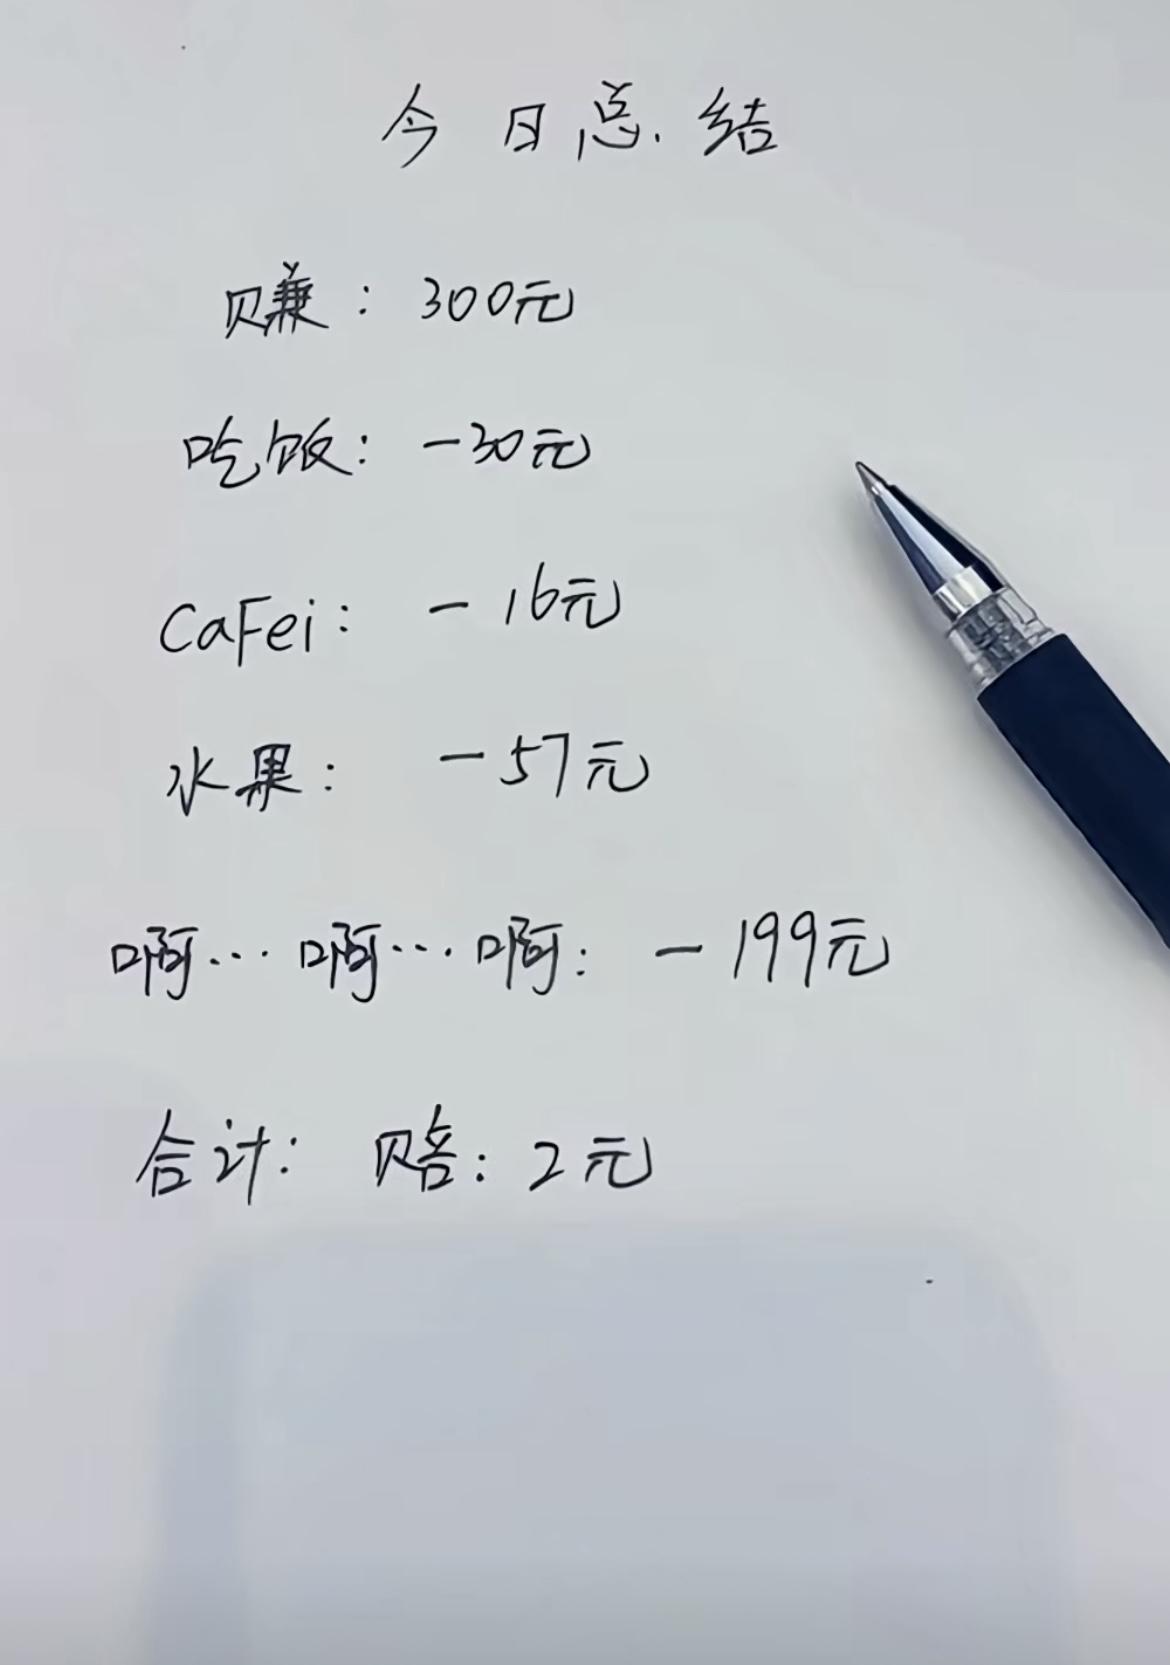 今日总结
赚：300元
吃饭：-30元
CaFei：-16元
水果：-57元
啊…啊…啊：-199元
合计：赔：2元